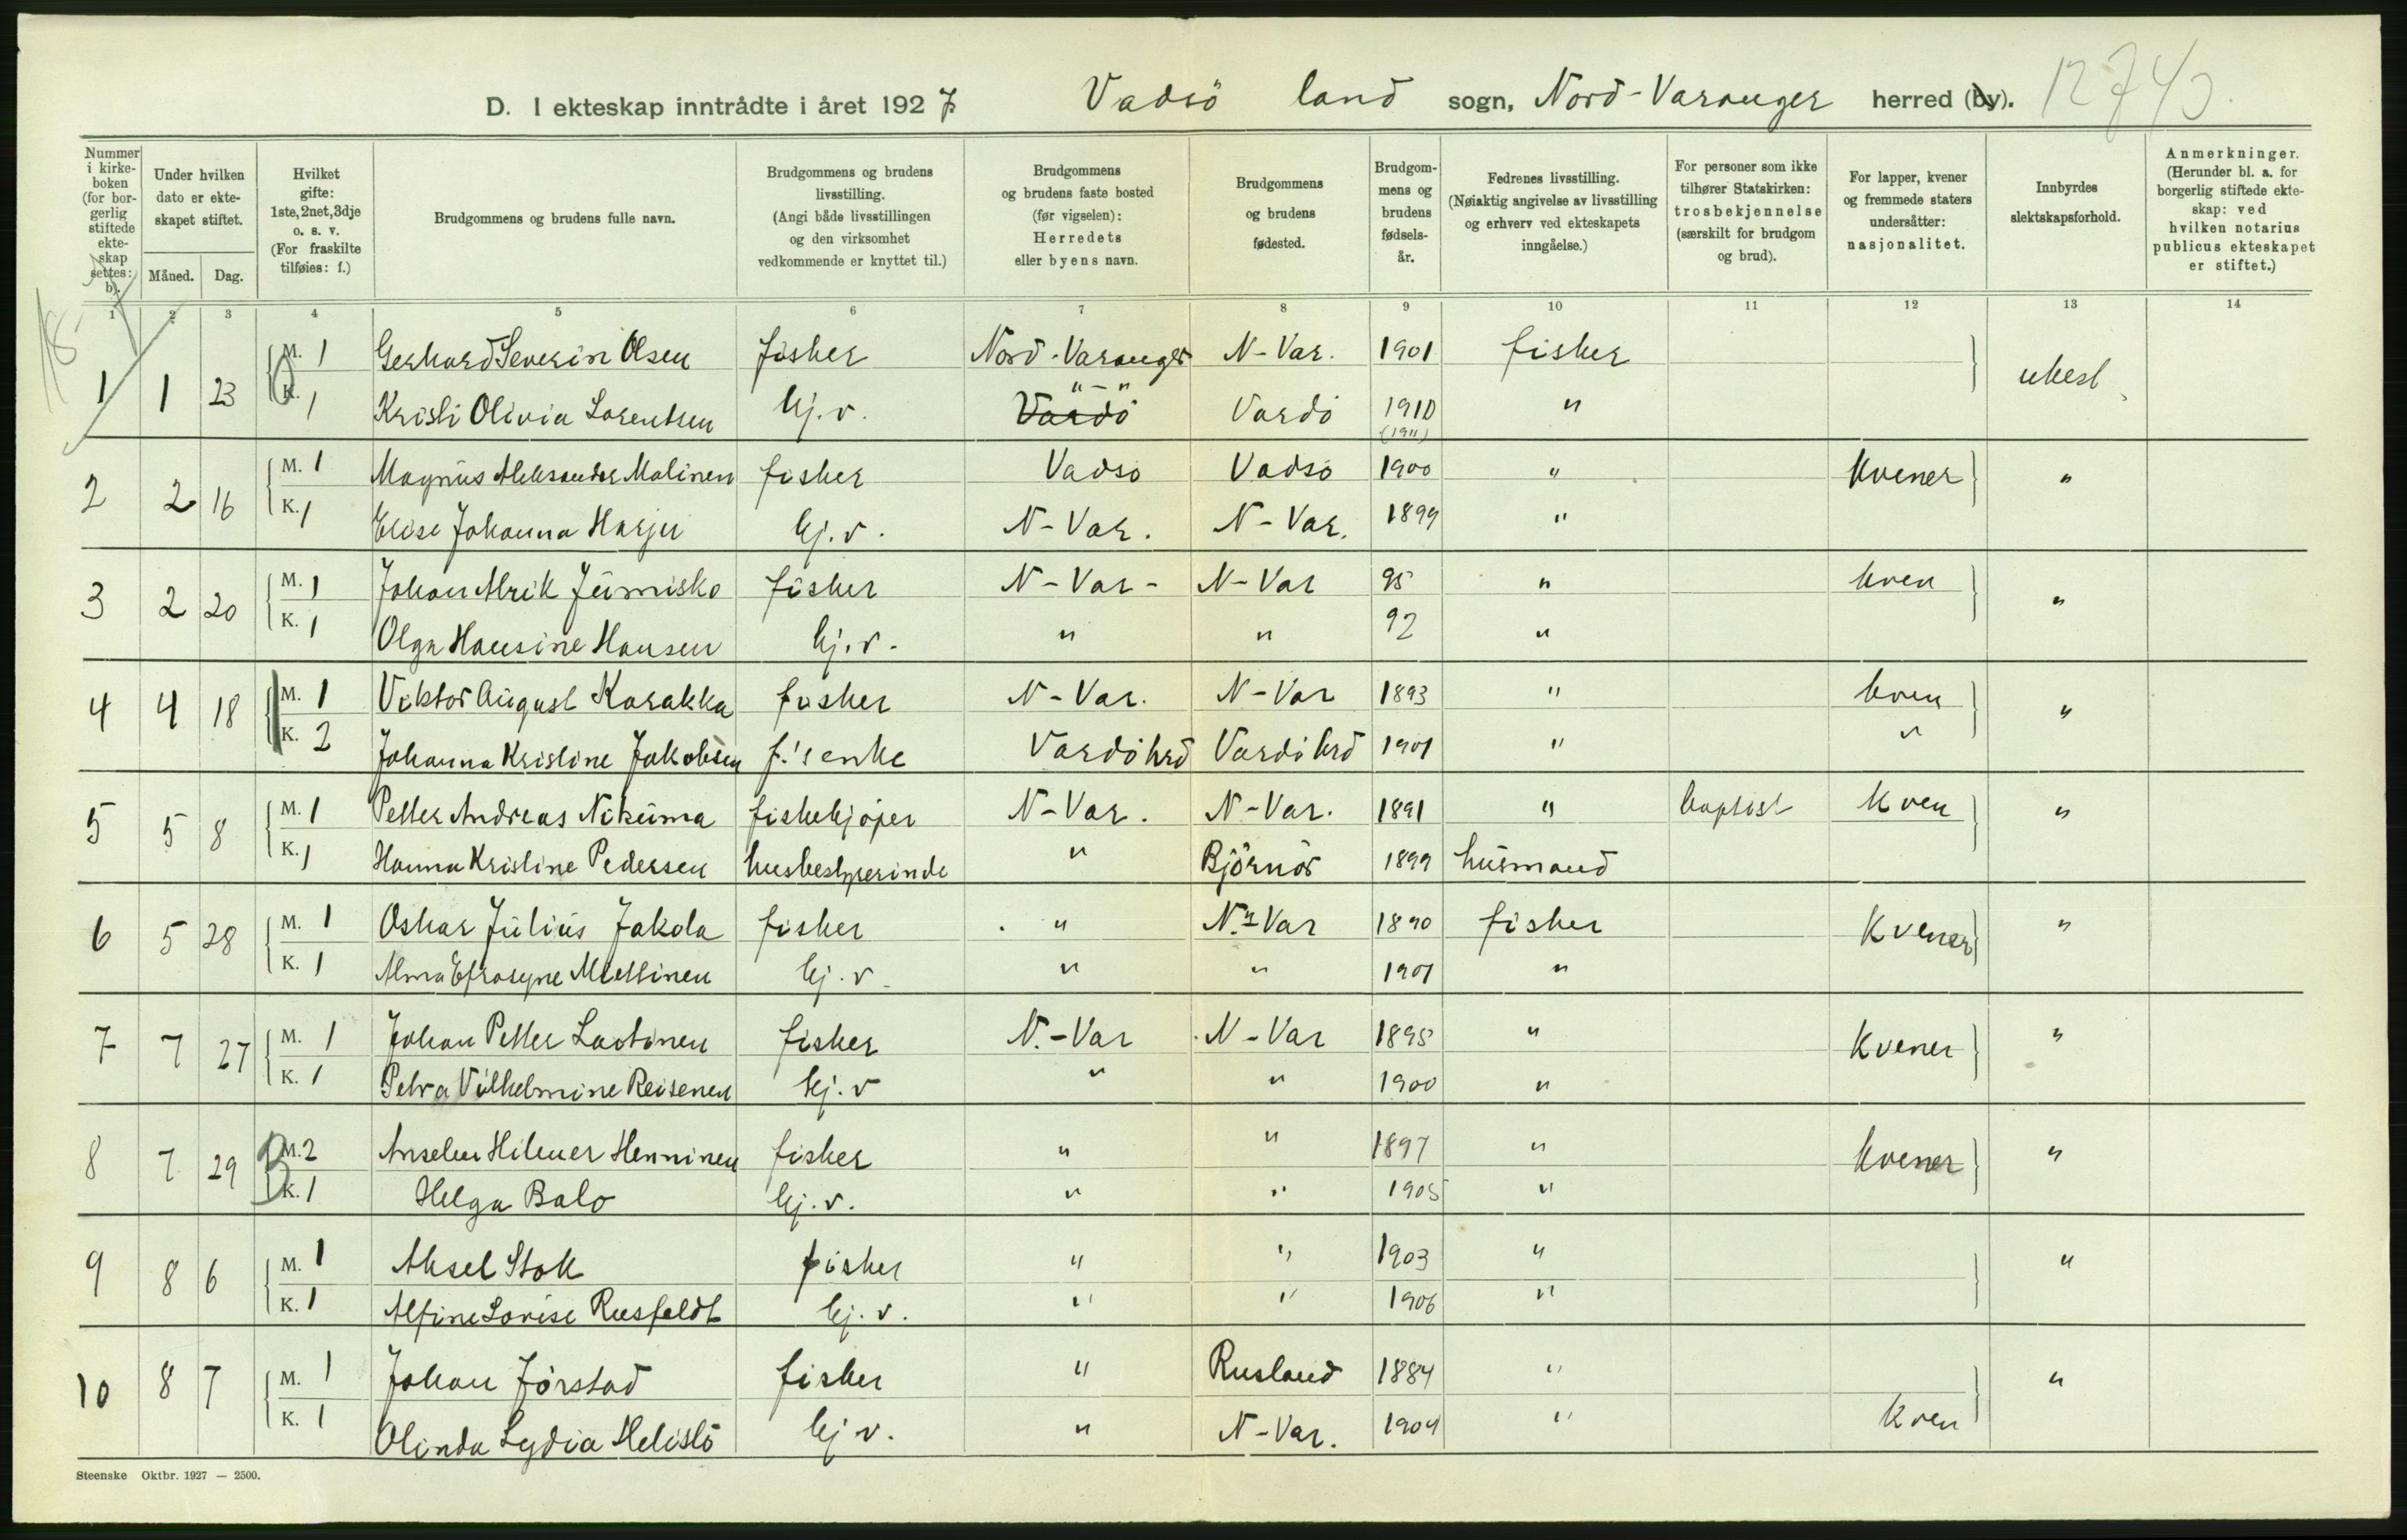 D. I ekteskap inntrådte i året 1927. Vadsö land sogn, Nord-Varanger herred (by). 12743
Nummer i kirkeboken (for borgerlig stiftede ekteskap settes: b).
Under hvilken dato er ekteskapet stiftet.
Måned. Dag.
Hvilket gifte: 1ste, 2net, 3dje o. s. v. (For fraskilte tilføies: f.)
Brudgommens og brudens fulle navn.
Brudgommens og brudens livsstilling. (Angi både livsstillingen og den virksomhet vedkommende er knyttet til.)
Brudgommens og brudens faste bosted (før vigselen): Herredets eller byens navn.
Brudgommens og brudens fødested.
Brudgommens og brudens fødselsår.
Fedrenes livsstilling. (Nøiaktig angivelse av livsstilling og erhverv ved ekteskapets inngåelse.)
For personer som ikke tilhører Statskirken: trosbekjennelse (særskilt for brudgom og brud).
For lapper, kvener og fremmede staters undersåtter: nasjonalitet.
Innbyrdes slektskapsforhold.
Anmerkninger. (Herunder bl. a. for borgerlig stiftede ekteskap: ved hvilken notarius publicus ekteskapet er stiftet.)
1 2 3 4 5 6 7 8 9 10 11 12 13 14
1 1 23 M. 1 Gerhard Severin Olsen fisker Nord-Varanger N-Var. 1901 fisker ubesl.
K. 1 Kristi Olivia Lorentsen hj. v. "-" Vardö Vardö 1910 (1911) "
2 2 16 M. 1 Magnus Aleksander Malinen fisker Vadsö Vadsö 1900 " kvener "
K. 1 Elise Johanna Harju hj. v. N-Var. N-Var. 1899 "
3 2 20 M. 1 Johan Alrik Jumisko fisker N-Var- N-Var 95 " kven "
K. 1 Olga Hansine Hansen hj. v. " " 92 "
4 4 18 M. 1 Viktor August Karakka fisker N-Var. N-Var 1893 " kven "
K. 2 Johanna Kristine Jakobsen f.'s enke Vardö hrd Vardö hrd 1901 " "
5 5 8 M. 1 Petter Andreas Nikuma fiskekjøper N-Var. N-Var. 1891 " baptist kven "
K. 1 Hanna Kristine Pedersen husbestyrerinde " Björnör 1899 husmand
6 5 28 M. 1 Oskar Julius Jakola fisker " N.-Var 1890 fisker Kvener "
K. 1 Alma Efrosyne Miettinen hj. v. " " 1901 "
7 7 27 M. 1 Johan Petter Laatinen fisker N.-Var N-Var 1895 " kvener "
K. 1 Petra Vilhelmine Reisenen hj. v " " 1900 "
8 7 29 M. 2 Anselm Hilmer Henninen fisker " " 1897 " kvener "
K. 1 Helga Balo hj. v. " " 1905 "
9 8 6 M. 1 Aksel Stok fisker " " 1903 " "
K. 1 Alfine Lovise Rusfeldt hj. v. " " 1906 "
10 8 7 M. 1 Johan Jörstad fisker " Rusland 1884 " "
K. 1 Olinda Lydia Helistö hj v. " N-Var. 1904 " kven
Steenske Oktbr. 1927 — 2500.